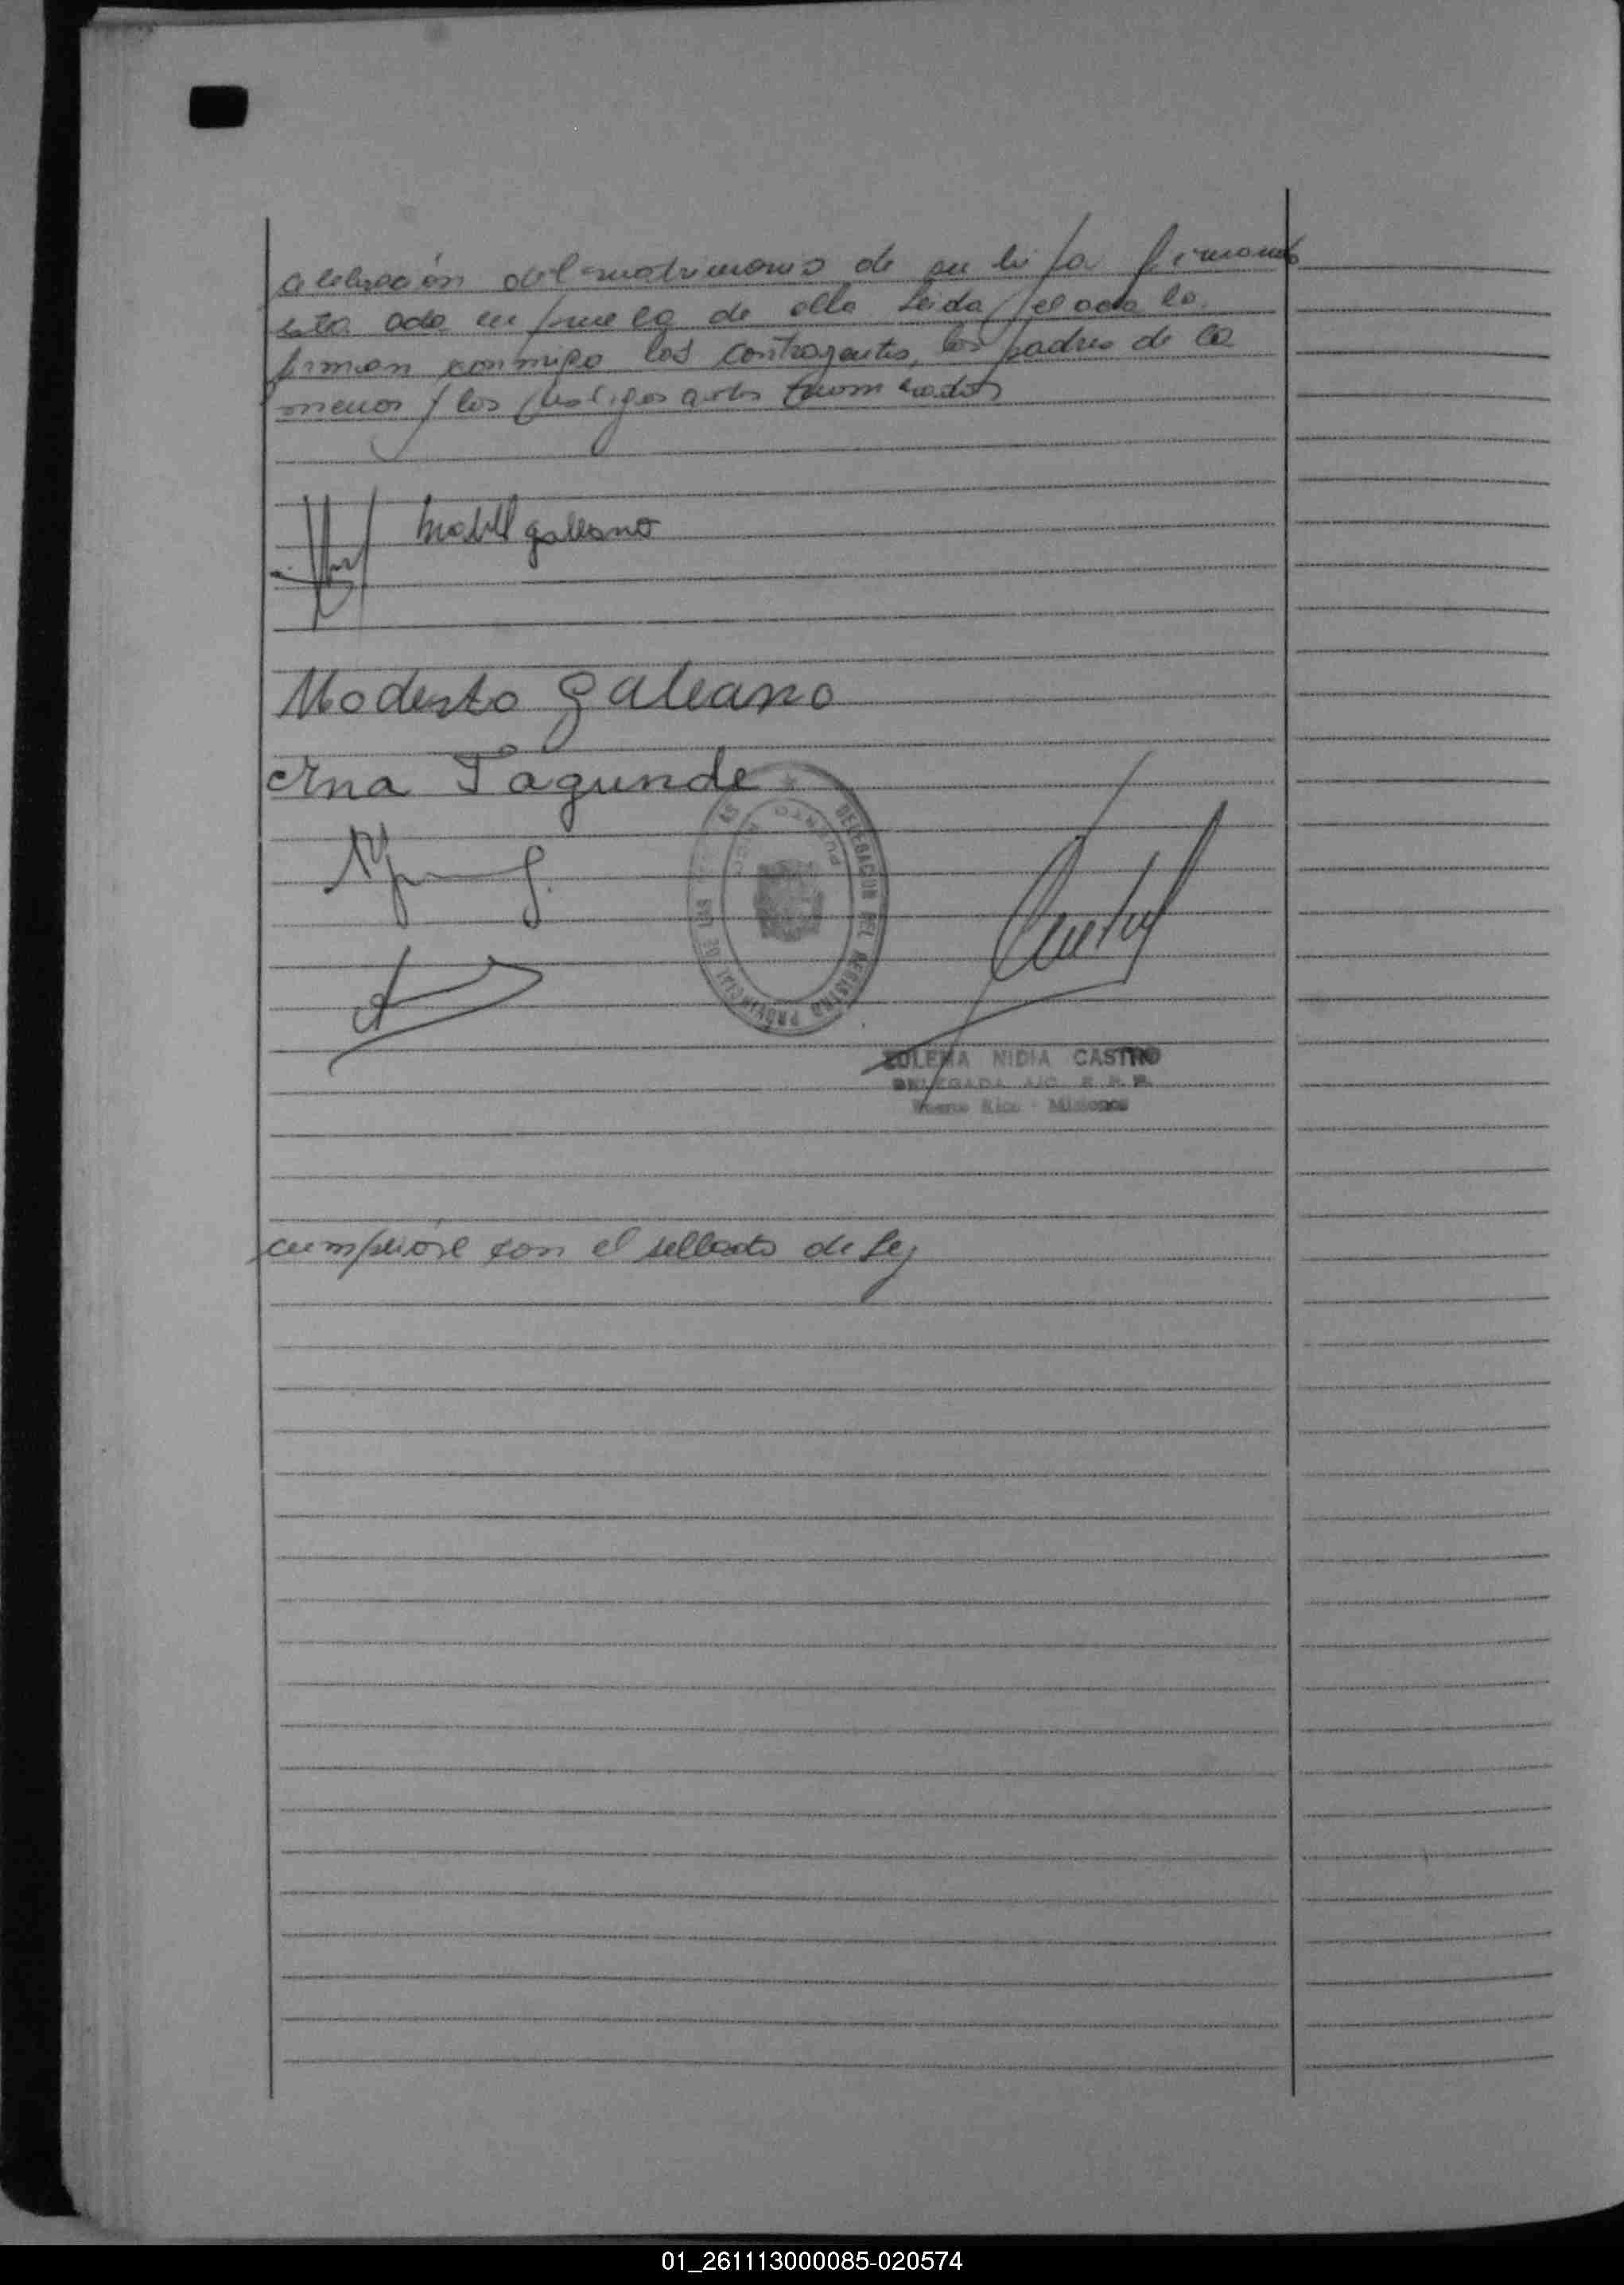 celebración del matrimonio de su hija firmando
esta acta en prueba de ello Leida el acta la
firman conmigo los contrayentes, los padres de la
menor y los testigos antes nombrados
Mabel galeano
Modesto Galeano
Ana Fagunde
DELEGACION DEL REGISTRO PROVINCIAL DE LAS
PUERTO RICO
ZULEMA NIDIA CASTRO
DELEGADA A/C R.P.P.
Puerto Rico - Misiones
cumplióse con el sellado de Ley
01_261113000085-020574